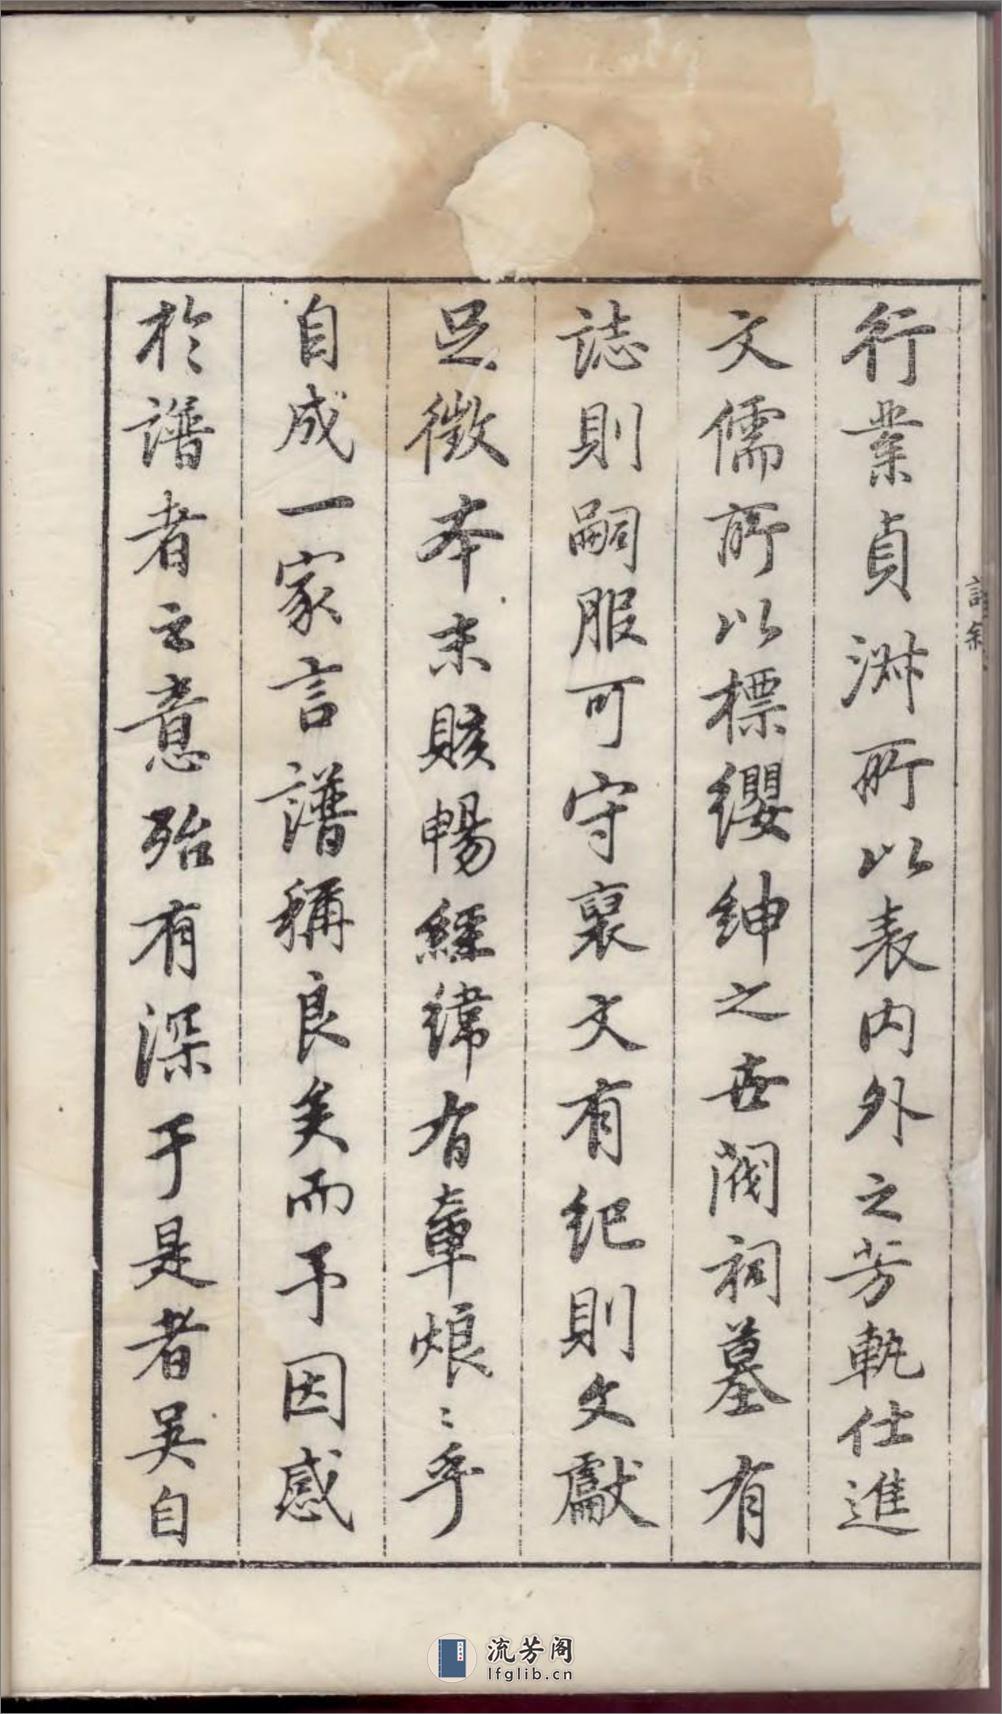 行業貞淑所以表內外之芳軌仕進
文儒所以標纓紳之世閥祠墓有
誌則嗣服可守裏文有紀則文獻
足徵本末賅暢經緯有章烺〻乎
自成一家言譜稱良矣而予因感
於譜者之意殆有深于是者吳自
流芳阁
lfglib.cn